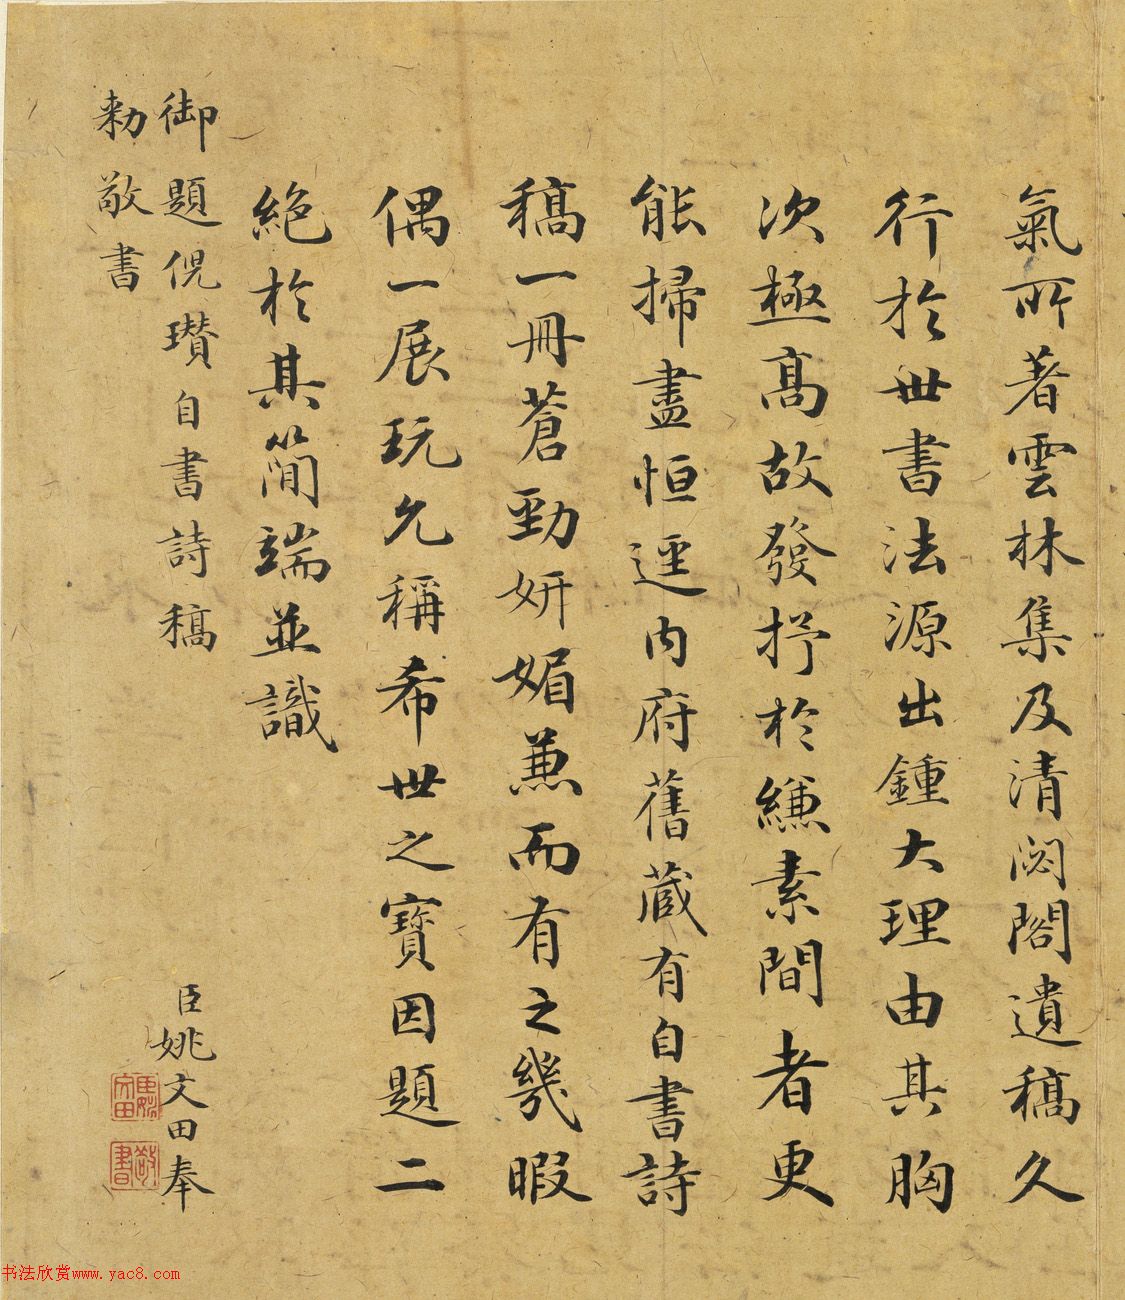 氣所著雲林集及清閟閣遺稿久
行於世書法源出鍾大理由其胸
次極髙故發抒於縑素間者更
能掃盡恒逕内府舊蔵有自書詩
稿一冊蒼勁妍媚兼而有之幾暇
偶一展玩允稱希世之寶因題二
絶於其簡端並識
御題倪瓚自書詩稿
臣姚文田奉
勅敬書
臣姚文田
敬書
书法欣赏www.yac8.com